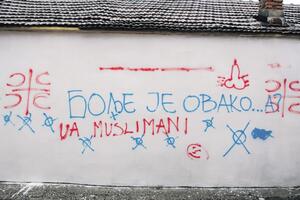 БОЉЕ ЈЕ ОВАКО...А?
ЦА MUSLIMANI